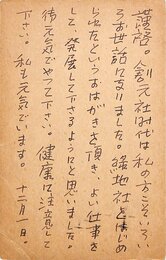 謹啓。創元社時代は私の方こそいろい
ろお世話になりました。緑地社をはじめ
られたというおはがきを頂き、よい仕事を
して、発展して下さるようにと思いました。
御元気でやって下さい。健康に注意して
下さい。私も元気でいます。十二月一日。